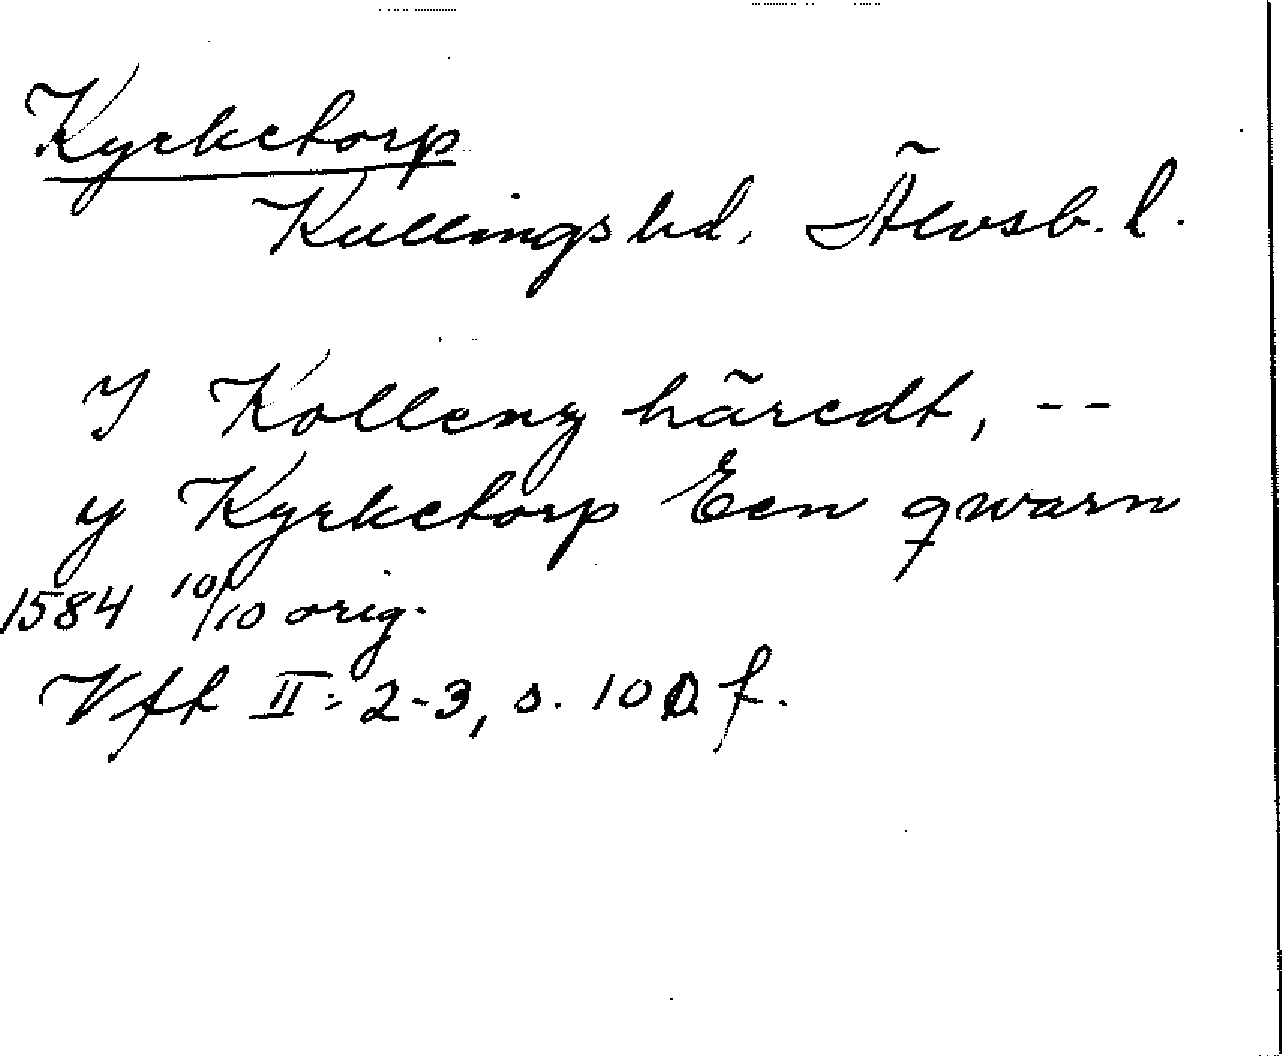 Kyrketorp
Kullings hd. Älvsb. l.
Y Kolleng häredt, --
y Kyrketorp Een qwarn
1584 10/10 orig.
Vft II: 2-3, s. 100 f.